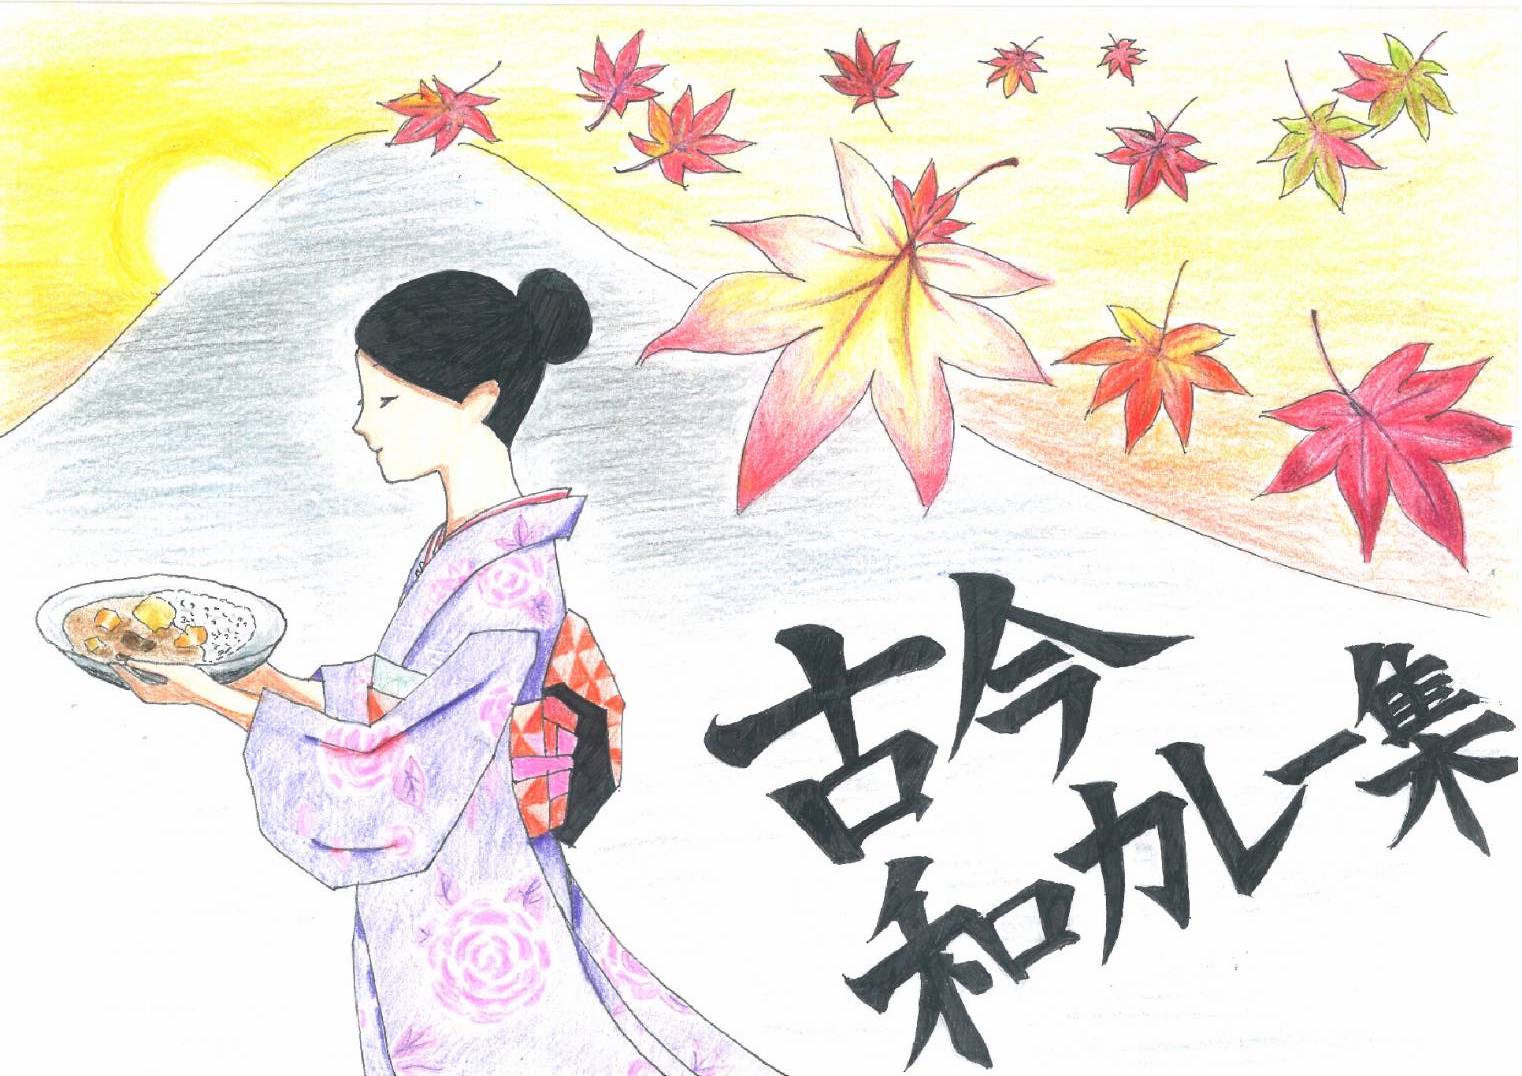 古今
和カレー集